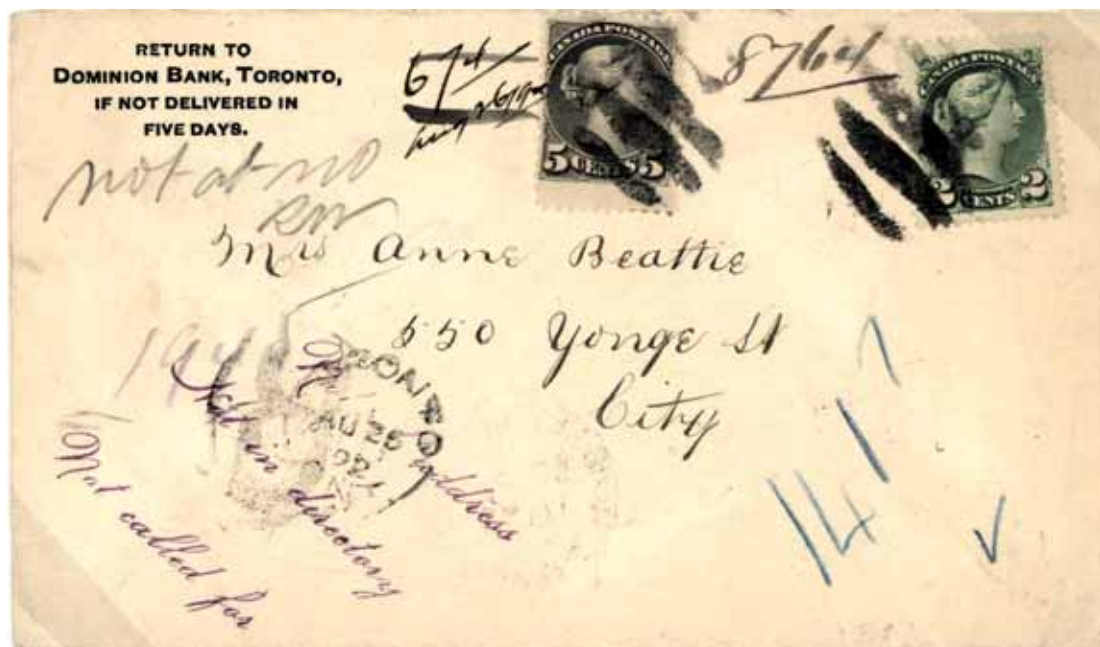 RETURN TO
DOMINION BANK, TORONTO,
IF NOT DELIVERED IN
FIVE DAYS.
CANADA POSTAGE
5 CENTS 5
8764
CANADA POSTAGE
2 CENTS 2
not at no
Mrs Anne Beattie
550 Yonge St
City
AU 25
address
Not in directory
Not called for
14